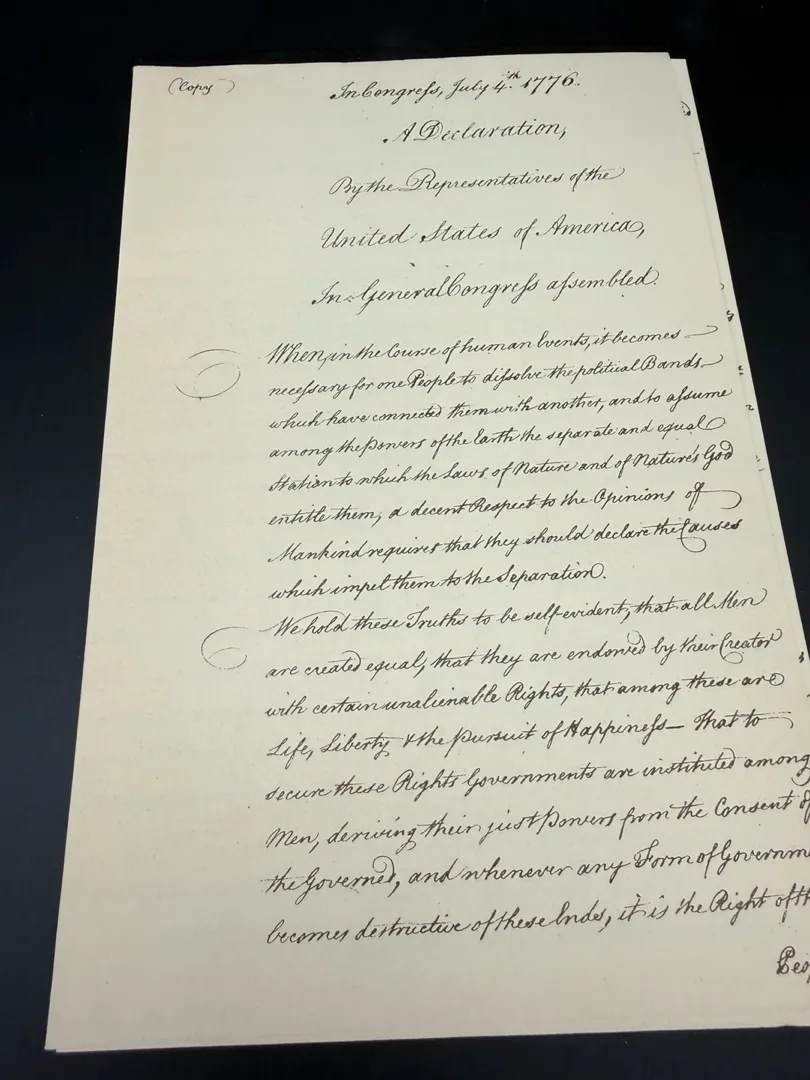 (Copy)
In Congress, July 4.th 1776.
A Declaration,
By the Representatives of the
United States of America,
In General Congress assembled.
When, in the Course of human Events, it becomes
necessary for one People to dissolve the political Bands
which have connected them with another, and to assume
among the Powers of the Earth the separate and equal
Station to which the Laws of Nature and of Nature's God
entitle them, a decent Respect to the Opinions of
Mankind requires that they should declare the Causes
which impel them to the Separation.
We hold these Truths to be self-evident, that all Men
are created equal, that they are endowed by their Creator
with certain unalienable Rights, that among these are
Life, Liberty & the pursuit of Happiness— That to
secure these Rights Governments are instituted among
Men, deriving their just Powers from the Consent of
the Governed, and whenever any Form of Governm
becomes destructive of these Ends, it is the Right of th
Peo